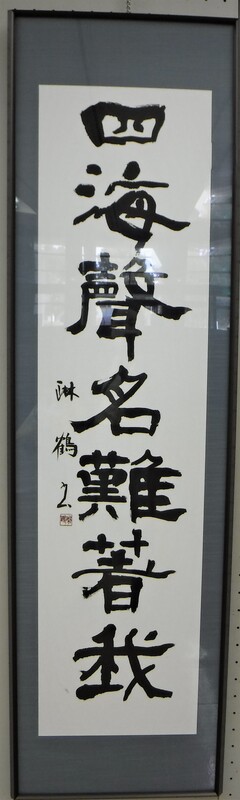 四海聲名難著我
琳鶴